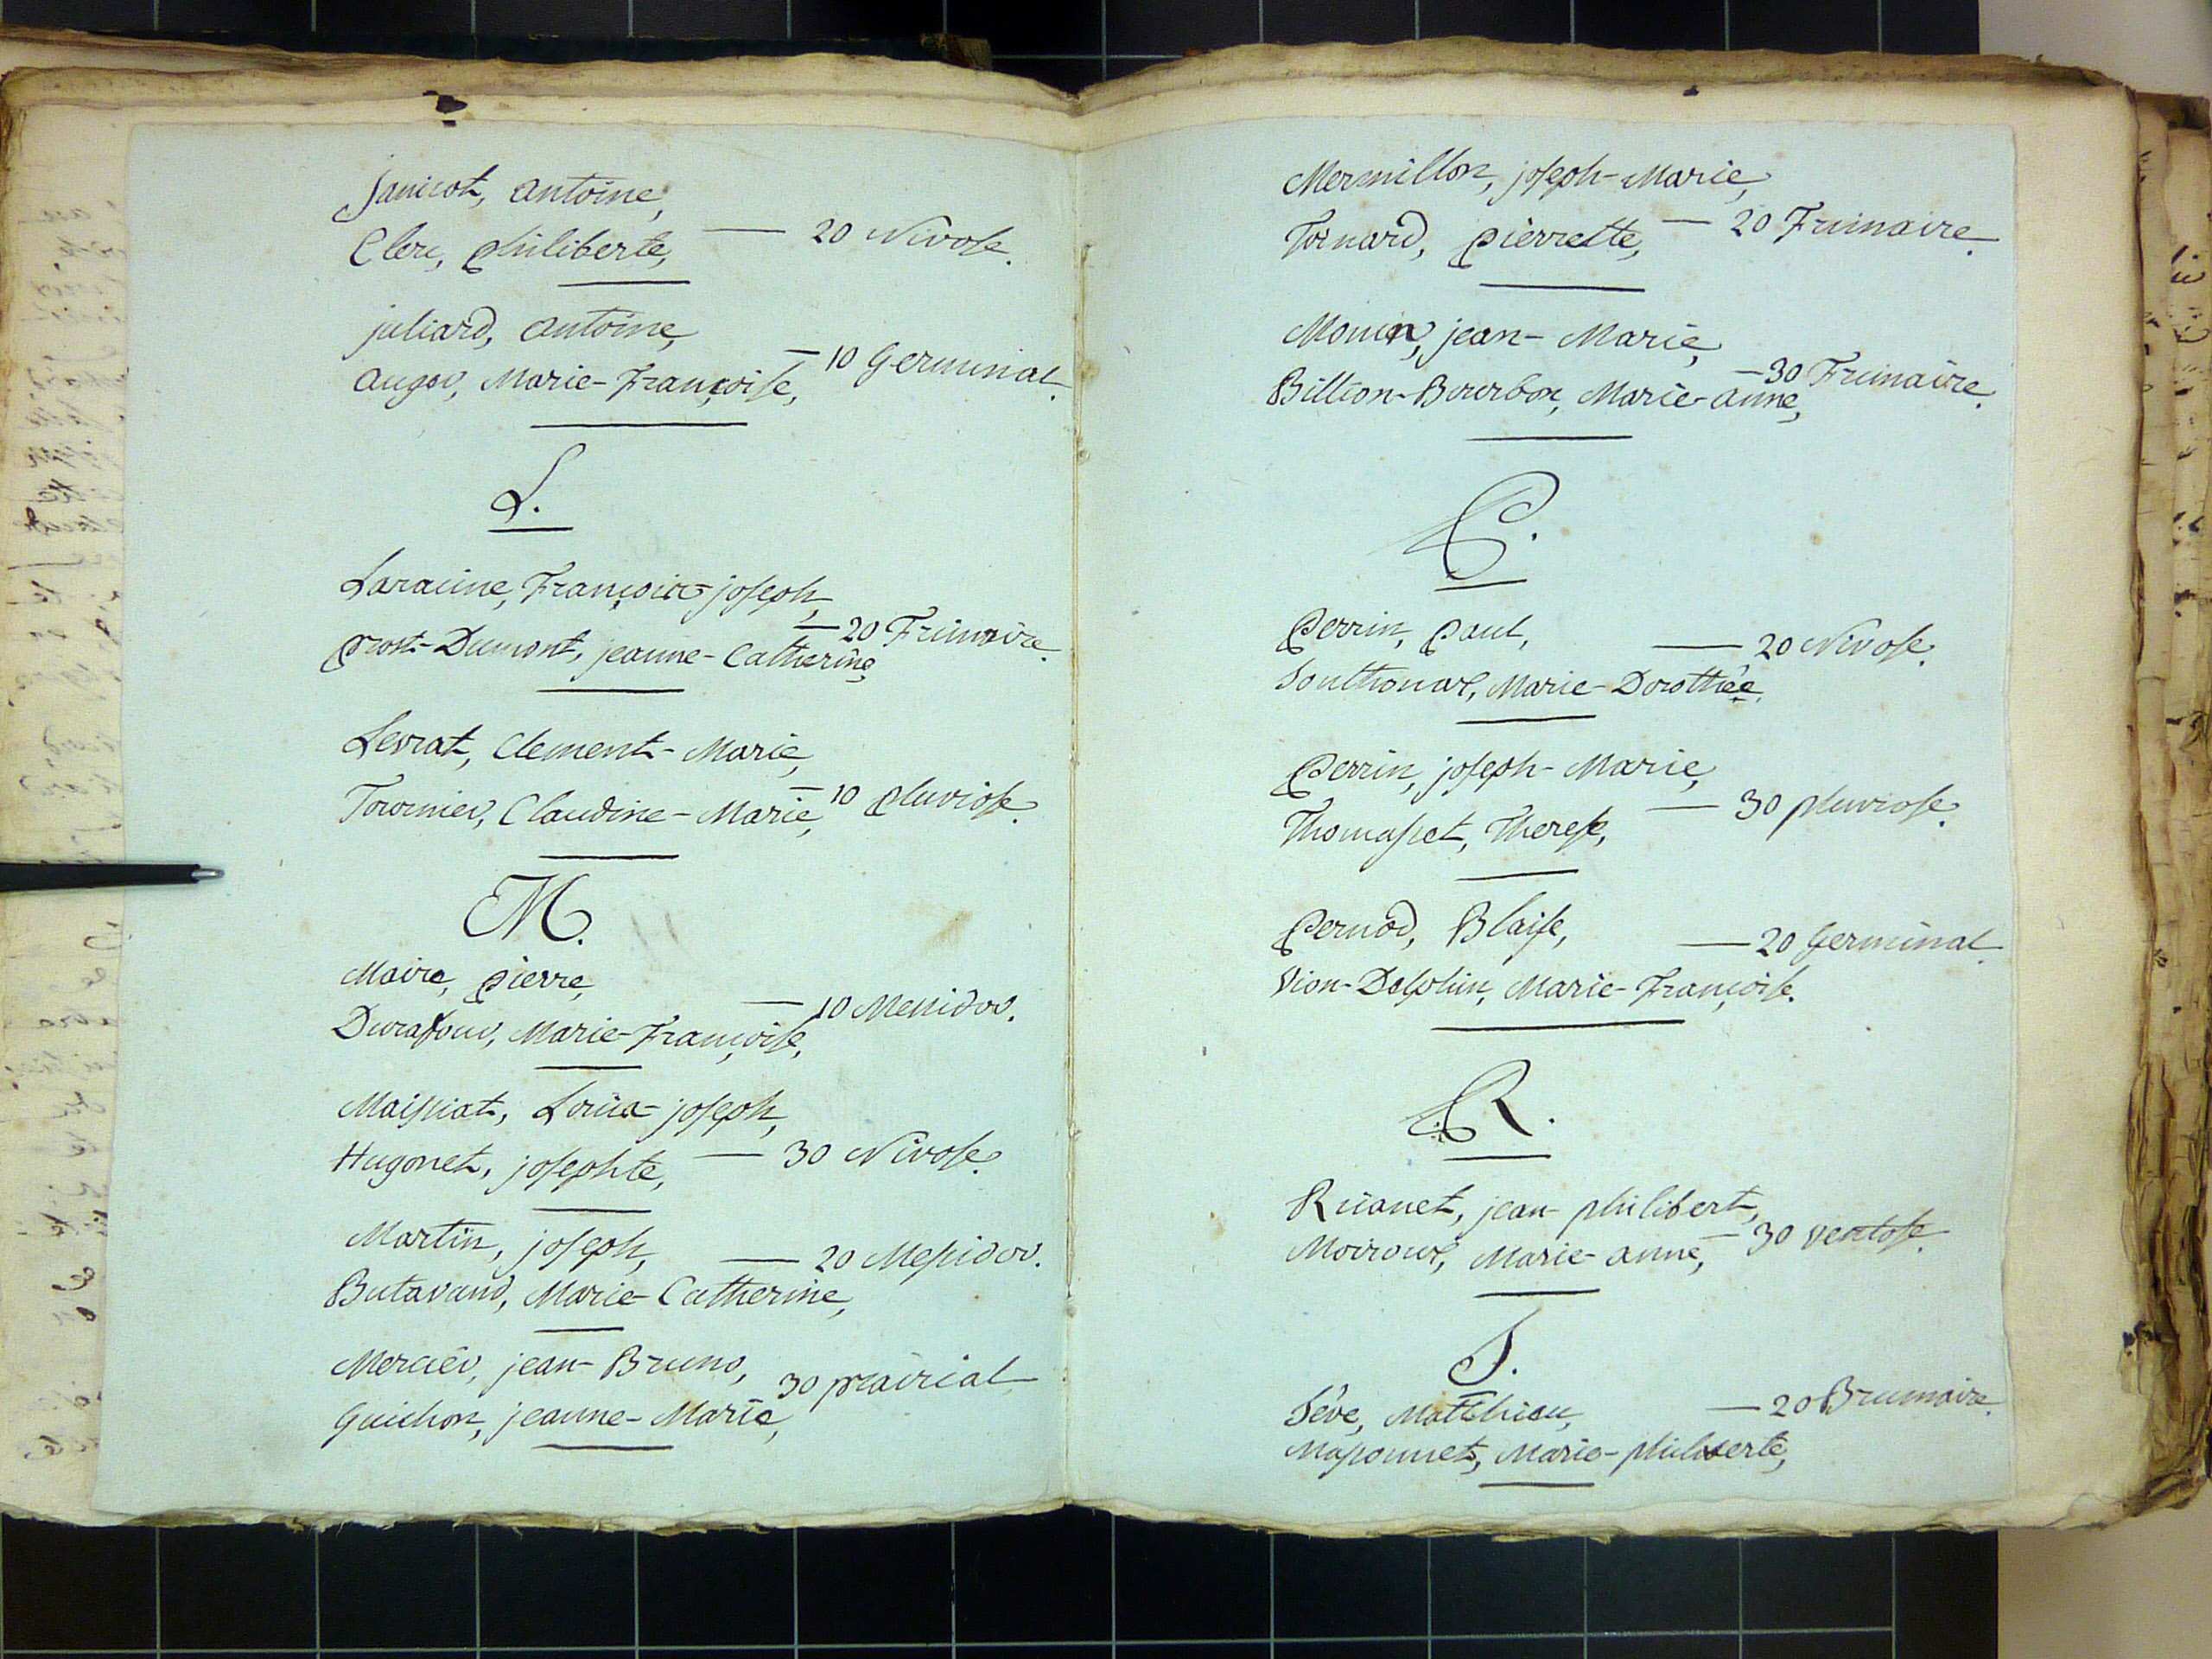 Janicot, Antoine,
Clerc, philiberte, — 20 Nivose.
juliard, Antoine,
Auger, Marie-Françoise, — 10 Germinal.
L.
Laracine, François-joseph,
prost-Dumont, jeanne-Catherine, — 20 Frimaire.
Levrat, Clement-Marie,
Tournier, Claudine-Marie, — 10 pluviose.
M.
Maire, pierre,
Durafour, Marie-Françoise, — 10 Messidor.
Maissiat, Louis-joseph,
Hugonet, josephte, — 30 Nivose.
Martin, joseph, — 20 Messidor.
Butavand, Marie-Catherine,
Mercier, jean-Bruno,
Guichon, jeanne-Marie, 30 prairial
Mermillon, joseph-Marie,
Toinard, pierrette, — 20 Frimaire.
Monin, jean-Marie,
Billion-Bourbon, Marie-anne, — 30 Frimaire.
P.
Perrin, Paul, — 20 Nivose.
Southonax, Marie-Dorothée.
Perrin, joseph-Marie,
Thomasset, Therese, — 30 pluviose.
Pernod, Blaise, — 20 Germinal.
Vion-Delphin, Marie-Françoise.
R.
Ruanet, jean-philibert,
Moiroux, Marie-anne, — 30 ventose.
S.
Séve, Matthieu, — 20 Brumaire.
Marie-philiberte,